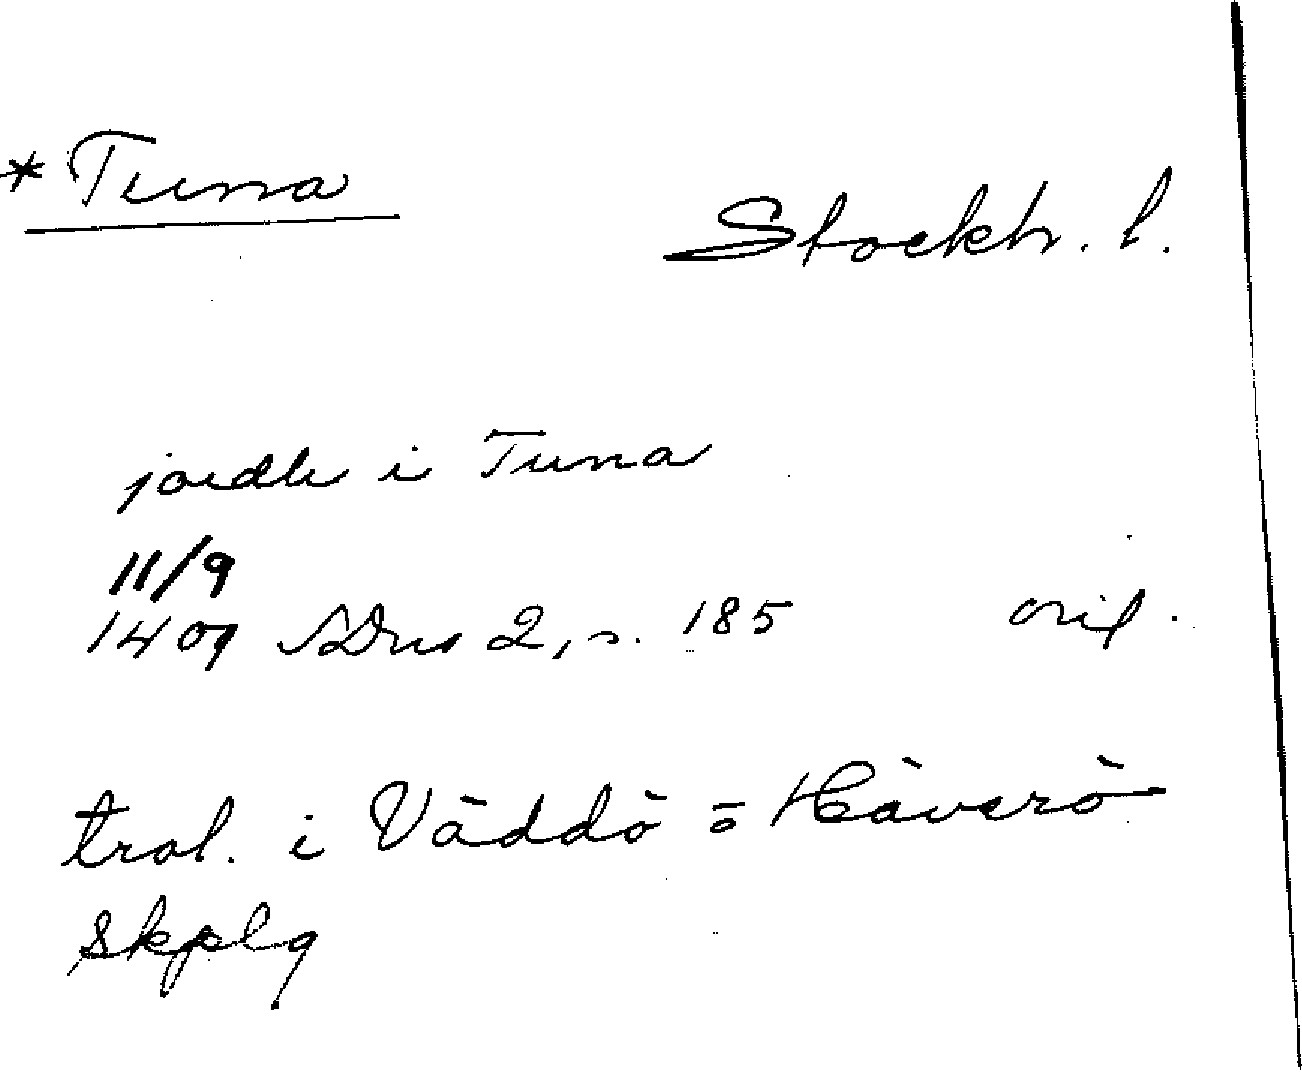 * Tuna
Stockh. l.
jordh i Tuna
11/9
1409 SDns 2, s. 185 orig.
trol. i Väddö o Häverö
skplg